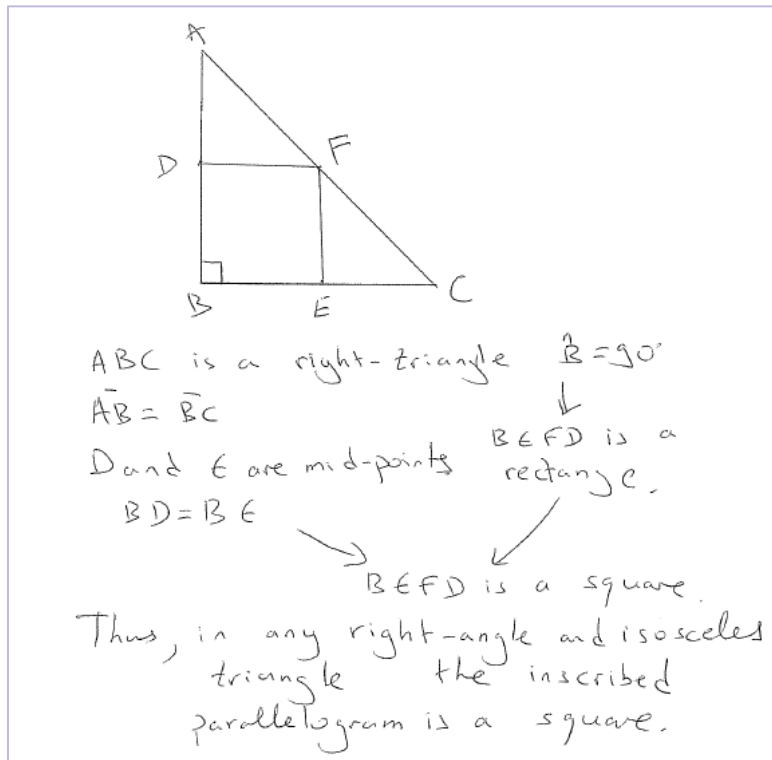 A
D
F
B
E
C
ABC is a right-triangle B̂ = 90°
A̅B = B̅C
BEFD is a
D and E are mid-points
rectange.
BD = BE
BEFD is a square.
Thus, in any right-angle and isosceles
triangle the inscribed
parallelogram is a square.